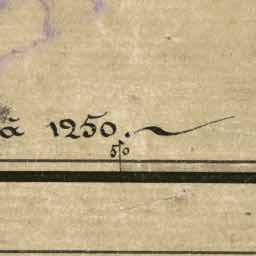 ā 1250.
50